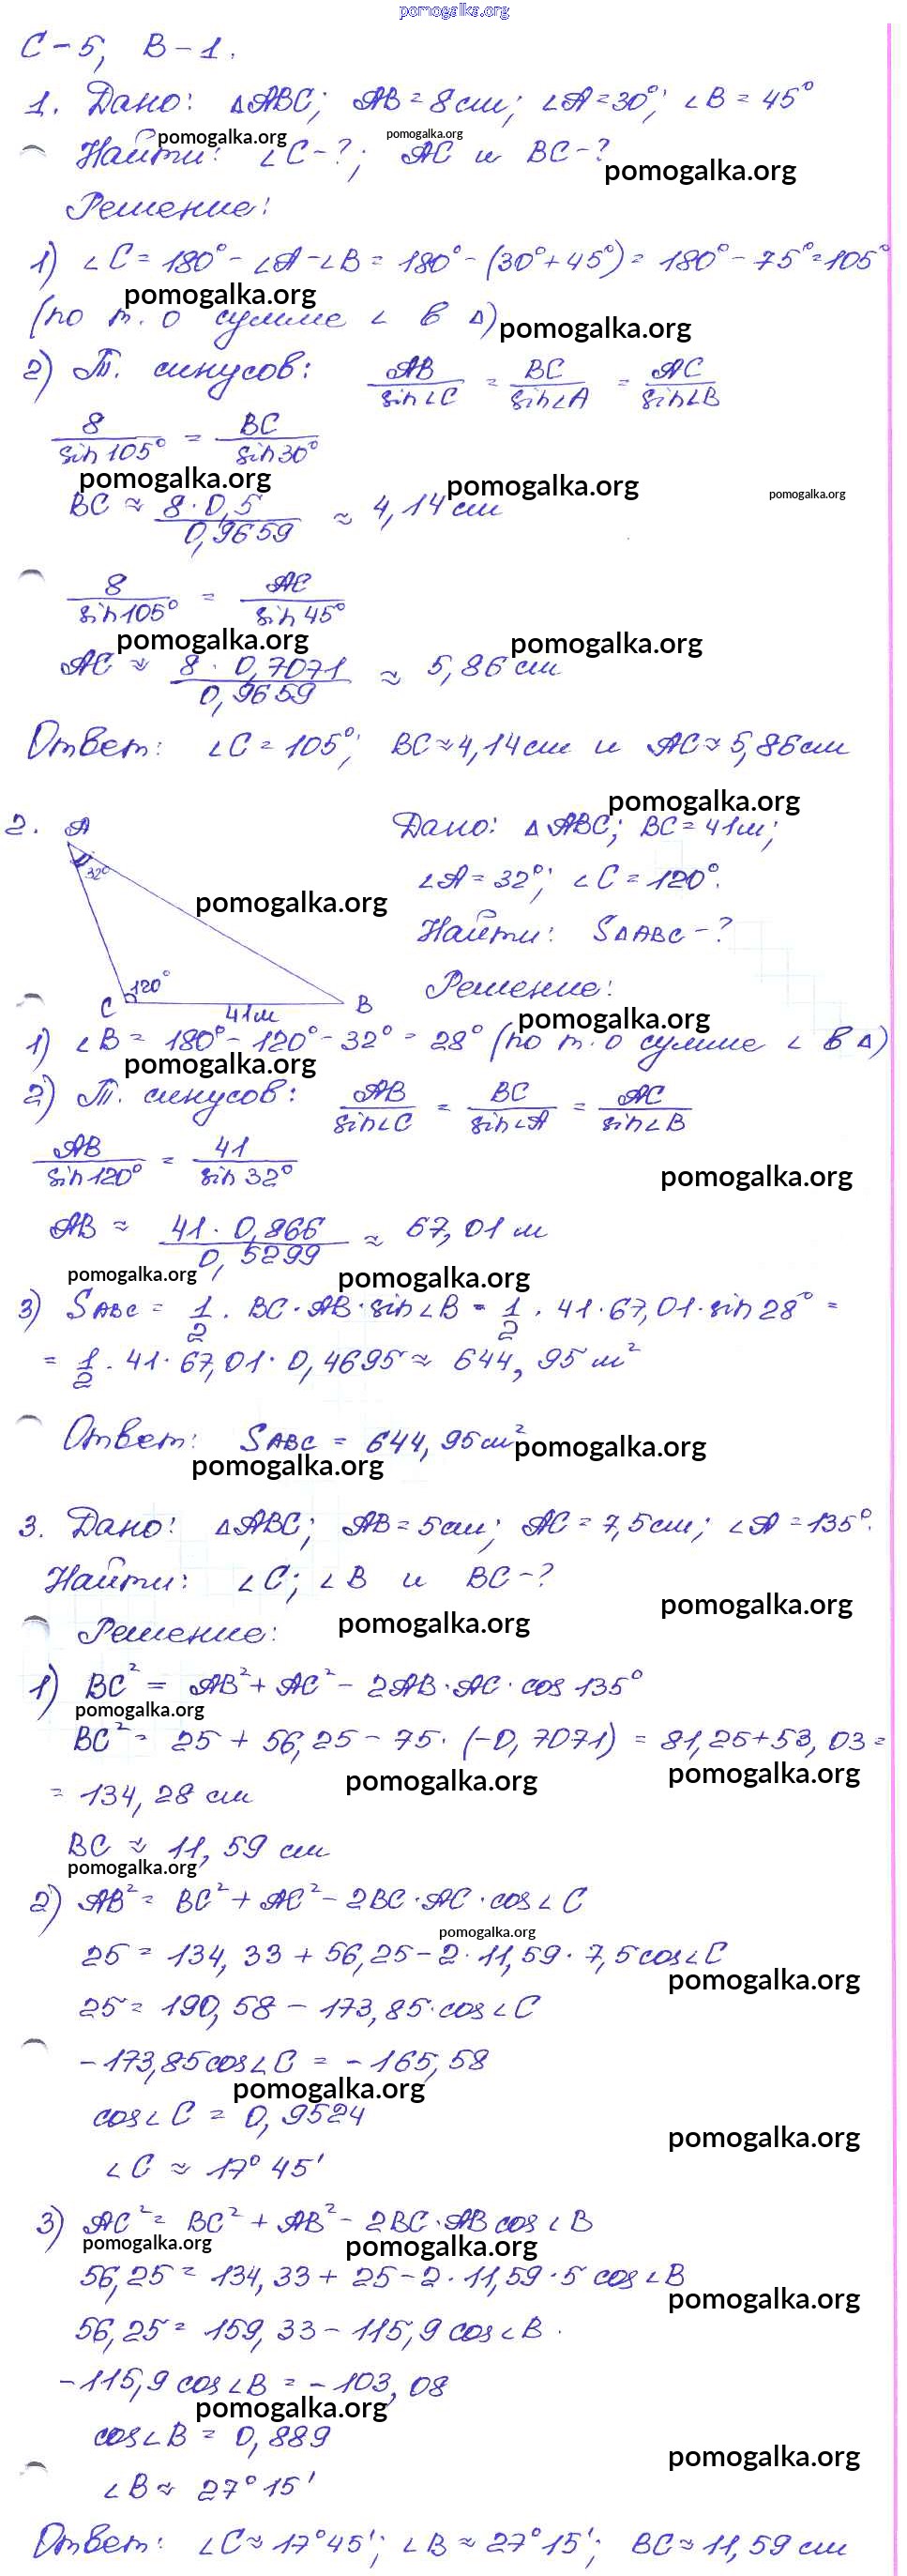 pomogalka.org
С-5, В-1.
1. Дано: ΔABC; AB = 8 см; ∠A = 30°; ∠B = 45°
pomogalka.org pomogalka.org
Найти: ∠C - ?; AC и BC - ?
pomogalka.org
Решение:
1) ∠C = 180° - ∠A - ∠B = 180° - (30° + 45°) = 180° - 75° = 105°
pomogalka.org
(по т. о сумме ∠ в Δ)
pomogalka.org
2) Т. синусов: AB/sin∠C = BC/sin∠A = AC/sin∠B
8/sin105° = BC/sin30°
pomogalka.org pomogalka.org pomogalka.org
BC ≈ 8·0,5/0,9659 ≈ 4,14 см
8/sin105° = AC/sin45°
pomogalka.org pomogalka.org
AC ≈ 8·0,7071/0,9659 ≈ 5,86 см
Ответ: ∠C = 105°; BC ≈ 4,14 см и AC ≈ 5,86 см
pomogalka.org
2. A
32°
120°
C
41м
B
Дано: ΔABC; BC = 41м;
∠A = 32°; ∠C = 120°.
pomogalka.org
Найти: SΔABC - ?
Решение:
pomogalka.org
1) ∠B = 180° - 120° - 32° = 28° (по т. о сумме ∠ в Δ)
pomogalka.org
2) Т. синусов: AB/sin∠C = BC/sin∠A = AC/sin∠B
AB/sin120° = 41/sin32°
pomogalka.org
AB ≈ 41·0,866/0,5299 ≈ 67,01 м
pomogalka.org pomogalka.org
3) SABC = 1/2 · BC·AB·sin∠B = 1/2 · 41·67,01·sin28° =
= 1/2 · 41·67,01·0,4695 ≈ 644,95 м²
Ответ: SABC = 644,95 см²
pomogalka.org
pomogalka.org
3. Дано: ΔABC; AB = 5см; AC = 7,5см; ∠A = 135°.
Найти: ∠C; ∠B и BC - ?
pomogalka.org
Решение:
pomogalka.org
1) BC² = AB² + AC² - 2AB·AC·cos135°
pomogalka.org
BC² = 25 + 56,25 - 75·(-0,7071) = 81,25 + 53,03 =
pomogalka.org pomogalka.org
= 134,28 см
BC ≈ 11,59 см
pomogalka.org
2) AB² = BC² + AC² - 2BC·AC·cos∠C
pomogalka.org
25 = 134,33 + 56,25 - 2·11,59·7,5cos∠C
pomogalka.org
25 = 190,58 - 173,85·cos∠C
-173,85cos∠C = -165,58
pomogalka.org
cos∠C = 0,9524
pomogalka.org
∠C ≈ 17°45'
3) AC² = BC² + AB² - 2BC·ABcos∠B
pomogalka.org pomogalka.org
56,25 = 134,33 + 25 - 2·11,59·5cos∠B
pomogalka.org
56,25 = 159,33 - 115,9cos∠B.
-115,9cos∠B = -103,08
pomogalka.org
cos∠B = 0,889
pomogalka.org
∠B ≈ 27°15'
Ответ: ∠C ≈ 17°45'; ∠B ≈ 27°15'; BC ≈ 11,59 см